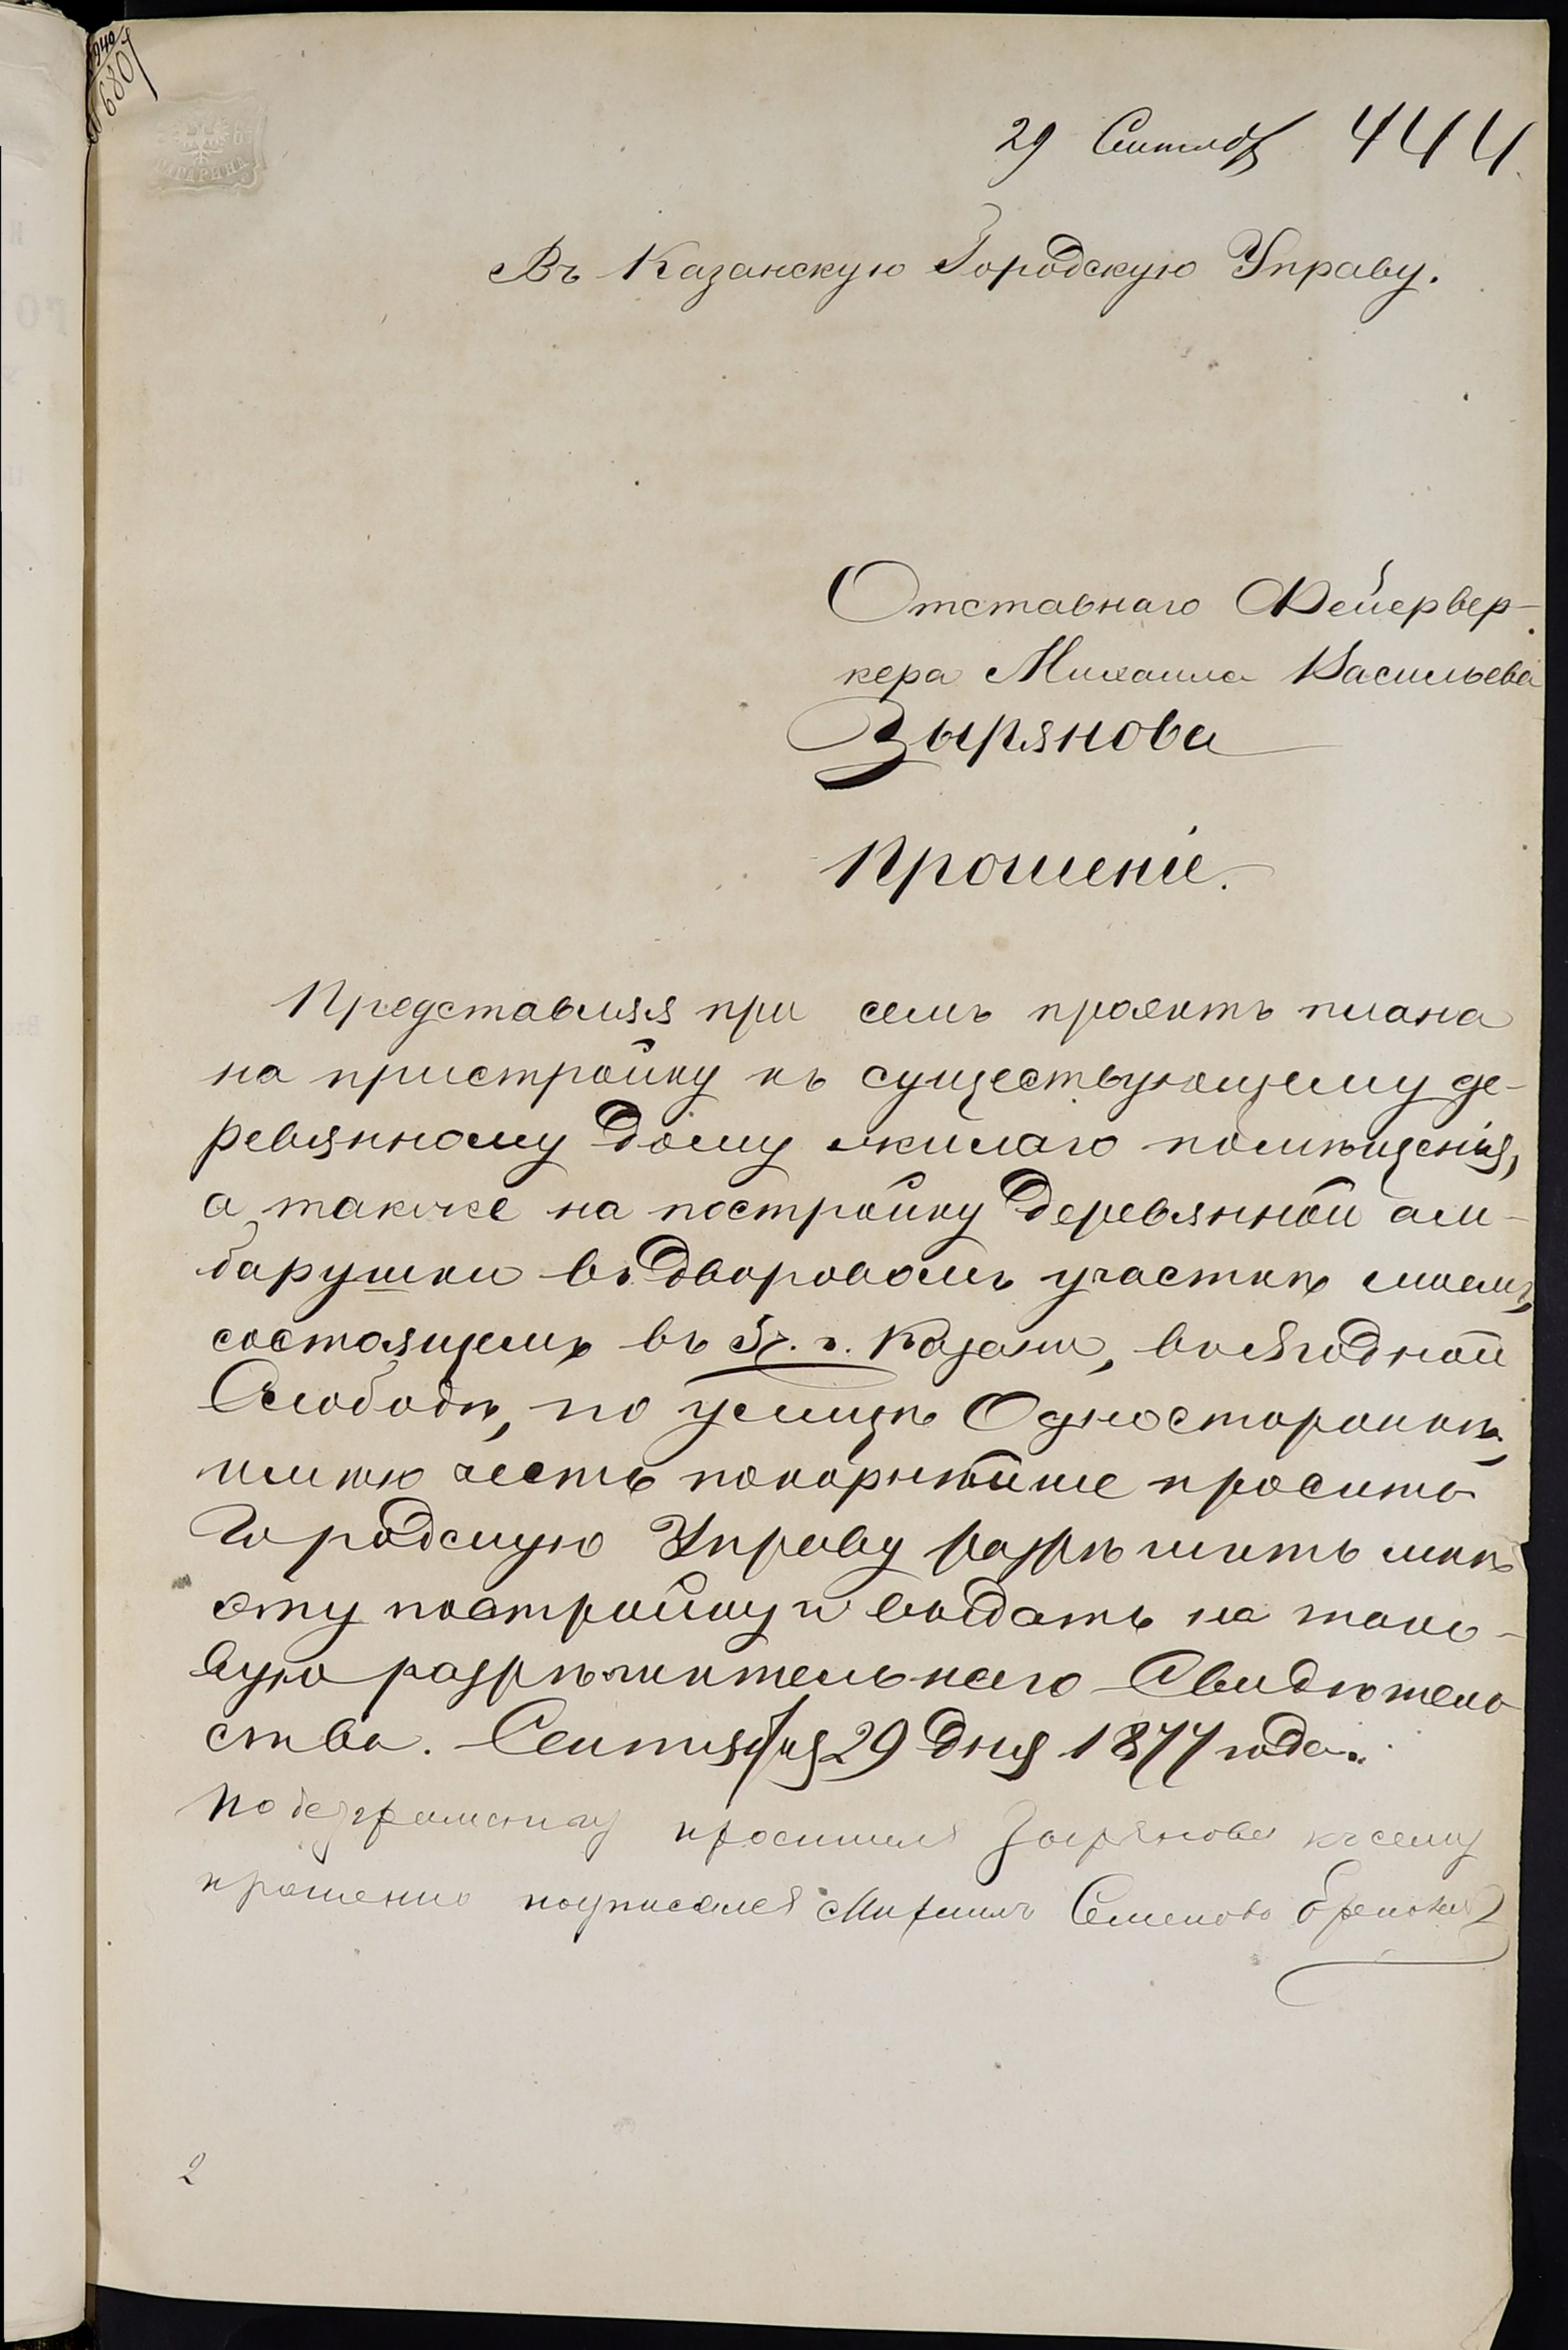 № 6807
29 Сентяб 444
Въ Казанскую Городскую Управу.
Отставнаго Фейервер-
кера Михаила Васильева
Зырянова
Прошеніе.
Представляя при семъ проэктъ плана
на пристройку къ существующему де-
ревянному дому жилаго помѣщенія,
а также на постройку деревянной ам-
барушки въ дворовомъ участкѣ моемъ,
состоящемъ въ 5 ч. г. Казани, во Ягодной
Слободѣ, по улицѣ Односторонкѣ,
имѣю честь покорнѣйше просить
Городскую Управу разрѣшить мнѣ
эту постройку и выдать на тако-
вую разрѣшительнаго Свидѣтель
ства. Сентября 29 дня 1877 года.
По безграмотству просителя Зырянова къ сему
прошенію подписался Семеновъ
2